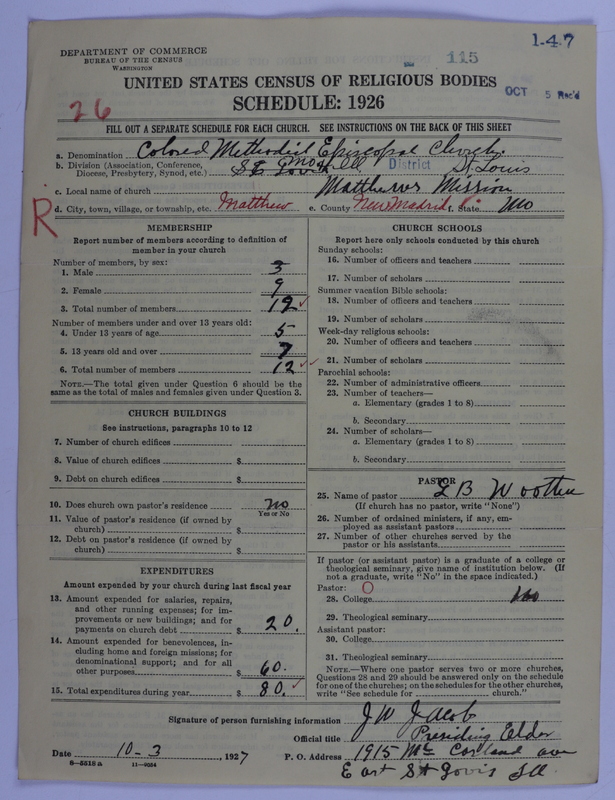 1-47
115
DEPARTMENT OF COMMERCE
BUREAU OF THE CENSUS
WASHINGTON
OCT 5 Rec'd
UNITED STATES CENSUS OF RELIGIOUS BODIES
SCHEDULE: 1926
26
FILL OUT A SEPARATE SCHEDULE FOR EACH CHURCH. SEE INSTRUCTIONS ON THE BACK OF THIS SHEET
a. Denomination Colored Methodist Episcopal Church
b. Division (Association, Conference, Diocese, Presbytery, Synod, etc.) S E Mo District St. Louis
c. Local name of church Matthews Mission
d. City, town, village, or township, etc. Matthew e. County New Madrid f. State Mo
R
MEMBERSHIP
Report number of members according to definition of
member in your church
Number of members, by sex:
1. Male 3
2. Female 9
3. Total number of members 12
Number of members under and over 13 years old:
4. Under 13 years of age 5
5. 13 years old and over 7
6. Total number of members 12
NOTE.—The total given under Question 6 should be
same as the total of males and females given under Question 3.
CHURCH BUILDINGS
See instructions, paragraphs 10 to 12
7. Number of church edifices
8. Value of church edifices $
9. Debt on church edifices $
10. Does church own pastor's residence no
Yes or No
11. Value of pastor's residence (if owned by
church) $
12. Debt on pastor's residence (if owned by
church) $
EXPENDITURES
Amount expended by your church during last fiscal year
13. Amount expended for salaries, repairs,
and other running expenses; for im-
provements or new buildings; and for
payments on church debt $ 20.
14. Amount expended for benevolences, in-
cluding home and foreign missions; for
denominational support; and for all
other purposes $ 60.
15. Total expenditures during year $ 80.
CHURCH SCHOOLS
Report here only schools conducted by this church
Sunday schools:
16. Number of officers and teachers
17. Number of scholars
Summer vacation Bible schools:
18. Number of officers and teachers
19. Number of scholars
Week-day religious schools:
20. Number of officers and teachers
21. Number of scholars
Parochial schools:
22. Number of administrative officers
23. Number of teachers—
a. Elementary (grades 1 to 8)
b. Secondary
24. Number of scholars—
a. Elementary (grades 1 to 8)
b. Secondary
PASTOR
25. Name of pastor L B Wootten
(If church has no pastor, write "None")
26. Number of ordained ministers, if any, em-
ployed as assistant pastors
27. Number of other churches served by the
pastor or his assistants
If pastor (or assistant pastor) is a graduate of a college or
theological seminary, give name of institution below. (If
not a graduate, write "No" in the space indicated.)
Pastor: O
28. College no
29. Theological seminary
Assistant pastor:
30. College
31. Theological seminary
NOTE.—Where one pastor serves two or more churches,
Questions 28 and 29 should be answered only on the schedule
for one of the churches; on the schedules for the other churches,
write "See schedule for church."
Signature of person furnishing information J W Jacob
Official title Presiding Elder
Date 10-3, 1927 P. O. Address 1915 Mc Casland ave
8-5518 a 11-9054 East St Louis Ill.